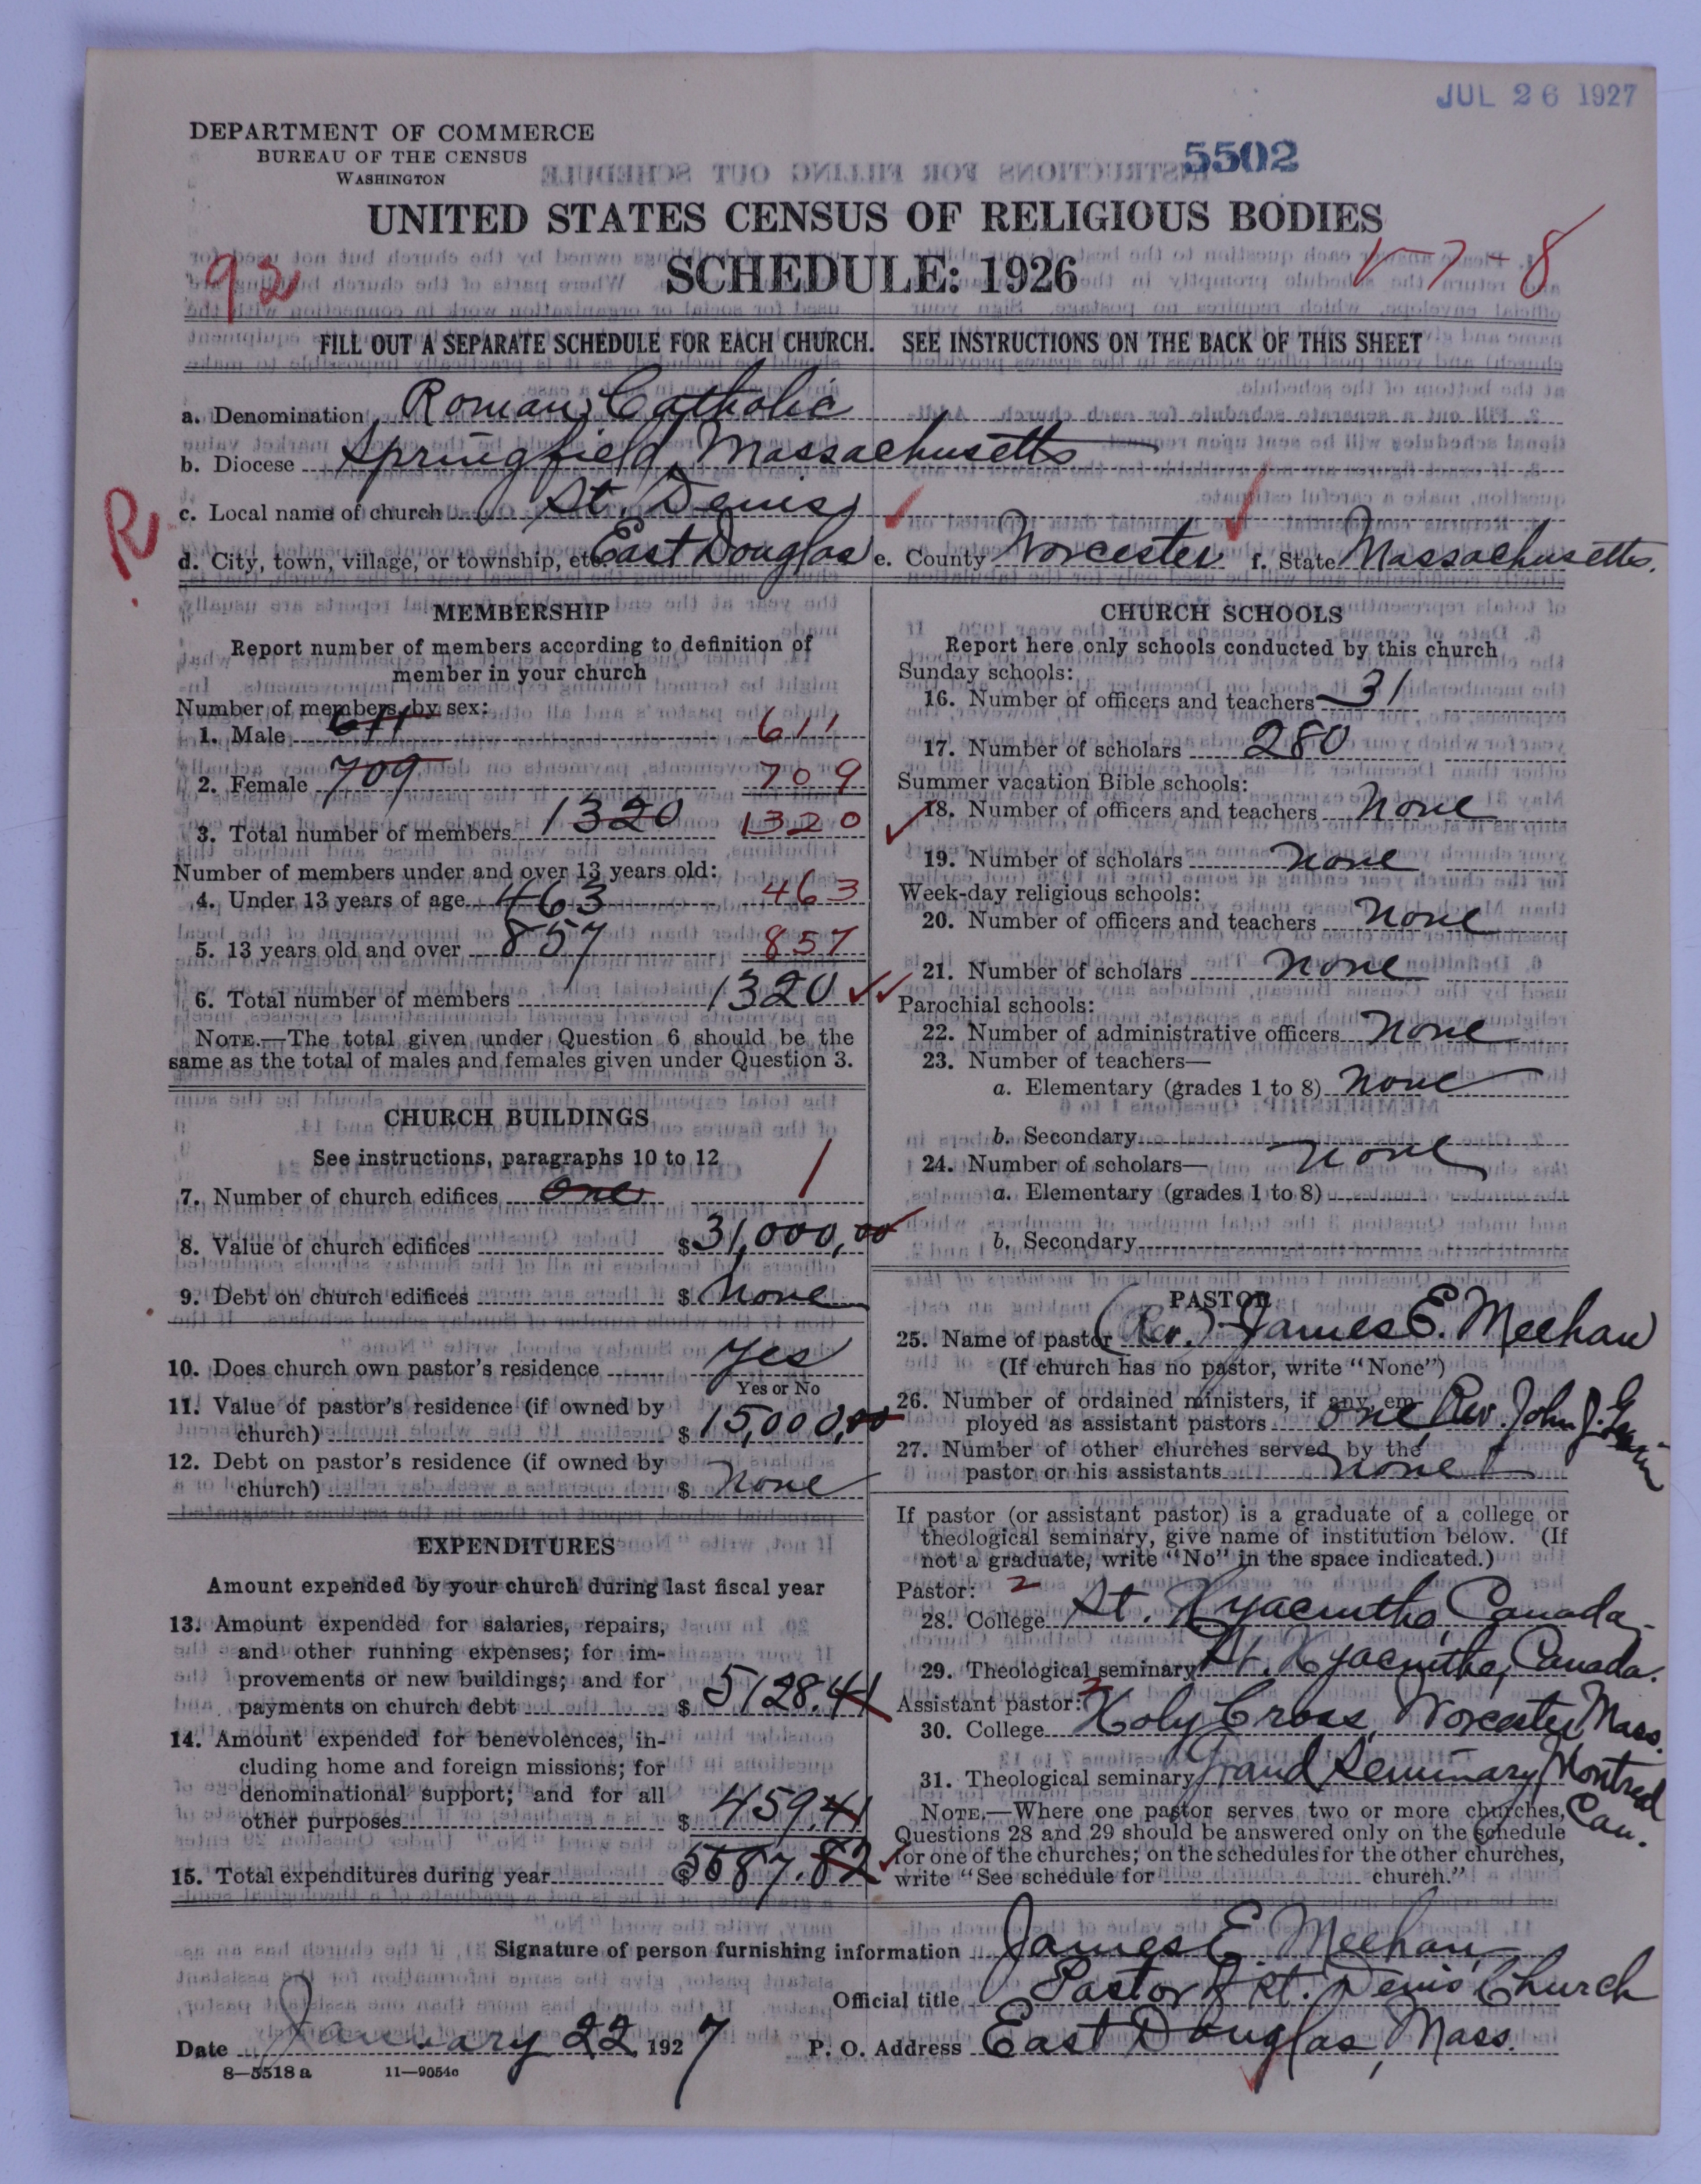 JUL 26 1927
DEPARTMENT OF COMMERCE
BUREAU OF THE CENSUS
WASHINGTON
5502
UNITED STATES CENSUS OF RELIGIOUS BODIES
SCHEDULE: 1926
92
7-8
FILL OUT A SEPARATE SCHEDULE FOR EACH CHURCH. SEE INSTRUCTIONS ON THE BACK OF THIS SHEET
a. Denomination Roman Catholic
b. Diocese Springfield, Massachusetts
R
c. Local name of church St. Denis
d. City, town, village, or township, etc. East Douglas e. County Worcester f. State Massachusetts.
MEMBERSHIP
Report number of members according to definition of
member in your church
Number of members, by sex:
1. Male 611 611
2. Female 709 709
3. Total number of members 1320 1320
Number of members under and over 13 years old:
4. Under 13 years of age 463 463
5. 13 years old and over 857 857
6. Total number of members 1320
NOTE.—The total given under Question 6 should be the
same as the total of males and females given under Question 3.
CHURCH BUILDINGS
See instructions, paragraphs 10 to 12
7. Number of church edifices one 1
8. Value of church edifices $31,000,00
9. Debt on church edifices $ None
10. Does church own pastor's residence Yes
Yes or No
11. Value of pastor's residence (if owned by
church) $15,000,00
12. Debt on pastor's residence (if owned by
church) $ None
EXPENDITURES
Amount expended by your church during last fiscal year
13. Amount expended for salaries, repairs,
and other running expenses; for im-
provements or new buildings; and for
payments on church debt $5128.41
14. Amount expended for benevolences, in-
cluding home and foreign missions; for
denominational support; and for all
other purposes $459.41
15. Total expenditures during year $5587.82
CHURCH SCHOOLS
Report here only schools conducted by this church
Sunday schools:
16. Number of officers and teachers 31
17. Number of scholars 280
Summer vacation Bible schools:
18. Number of officers and teachers None
19. Number of scholars None
Week-day religious schools:
20. Number of officers and teachers None
21. Number of scholars None
Parochial schools:
22. Number of administrative officers None
23. Number of teachers—
a. Elementary (grades 1 to 8) None
b. Secondary
24. Number of scholars— None
a. Elementary (grades 1 to 8)
b. Secondary
PASTOR
25. Name of pastor (Rev.) James E. Meehan
(If church has no pastor, write "None")
26. Number of ordained ministers, if any, em-
ployed as assistant pastors one, Rev. John J.
27. Number of other churches served by the
pastor or his assistants None
If pastor (or assistant pastor) is a graduate of a college or
theological seminary, give name of institution below. (If
not a graduate, write "No" in the space indicated.)
Pastor: 2
28. College St. Hyacinthe, Canada.
29. Theological seminary St. Hyacinthe, Canada.
Assistant pastor: 2
30. College Holy Cross, Worcester, Mass.
31. Theological seminary Grand Seminary, Montreal
Can.
NOTE.—Where one pastor serves two or more churches,
Questions 28 and 29 should be answered only on the schedule
for one of the churches; on the schedules for the other churches,
write "See schedule for church."
Signature of person furnishing information James E. Meehan
Official title Pastor of St. Denis Church
Date January 22 1927 P. O. Address East Douglas, Mass.
8—5518 a 11—9054c